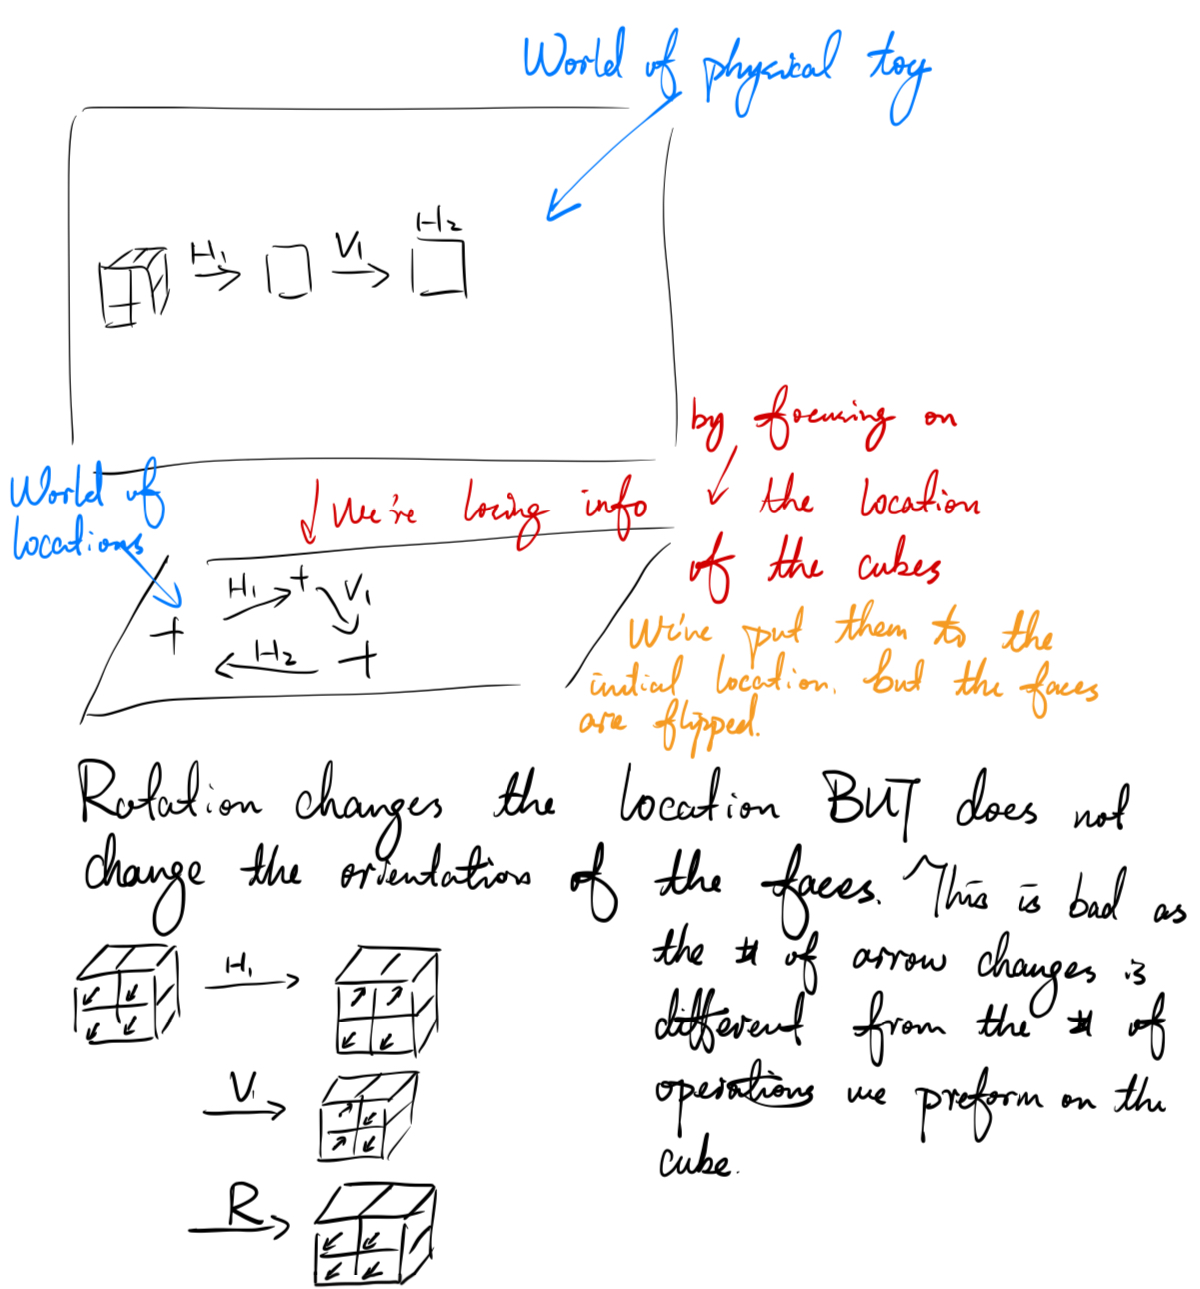 World of physical toy
H₁ V₁ H₂
by focusing on
the location
of the cubes
World of
locations
We're losing info
H₁ + V₁
+ H₂ +
We've put them to the
initial location. but the faces
are flipped.
Rotation changes the location BUT does not
change the orientation of the faces. This is bad as
the # of arrow changes is
different from the # of
operations we preform on the
cube.
H₁
V₁
R